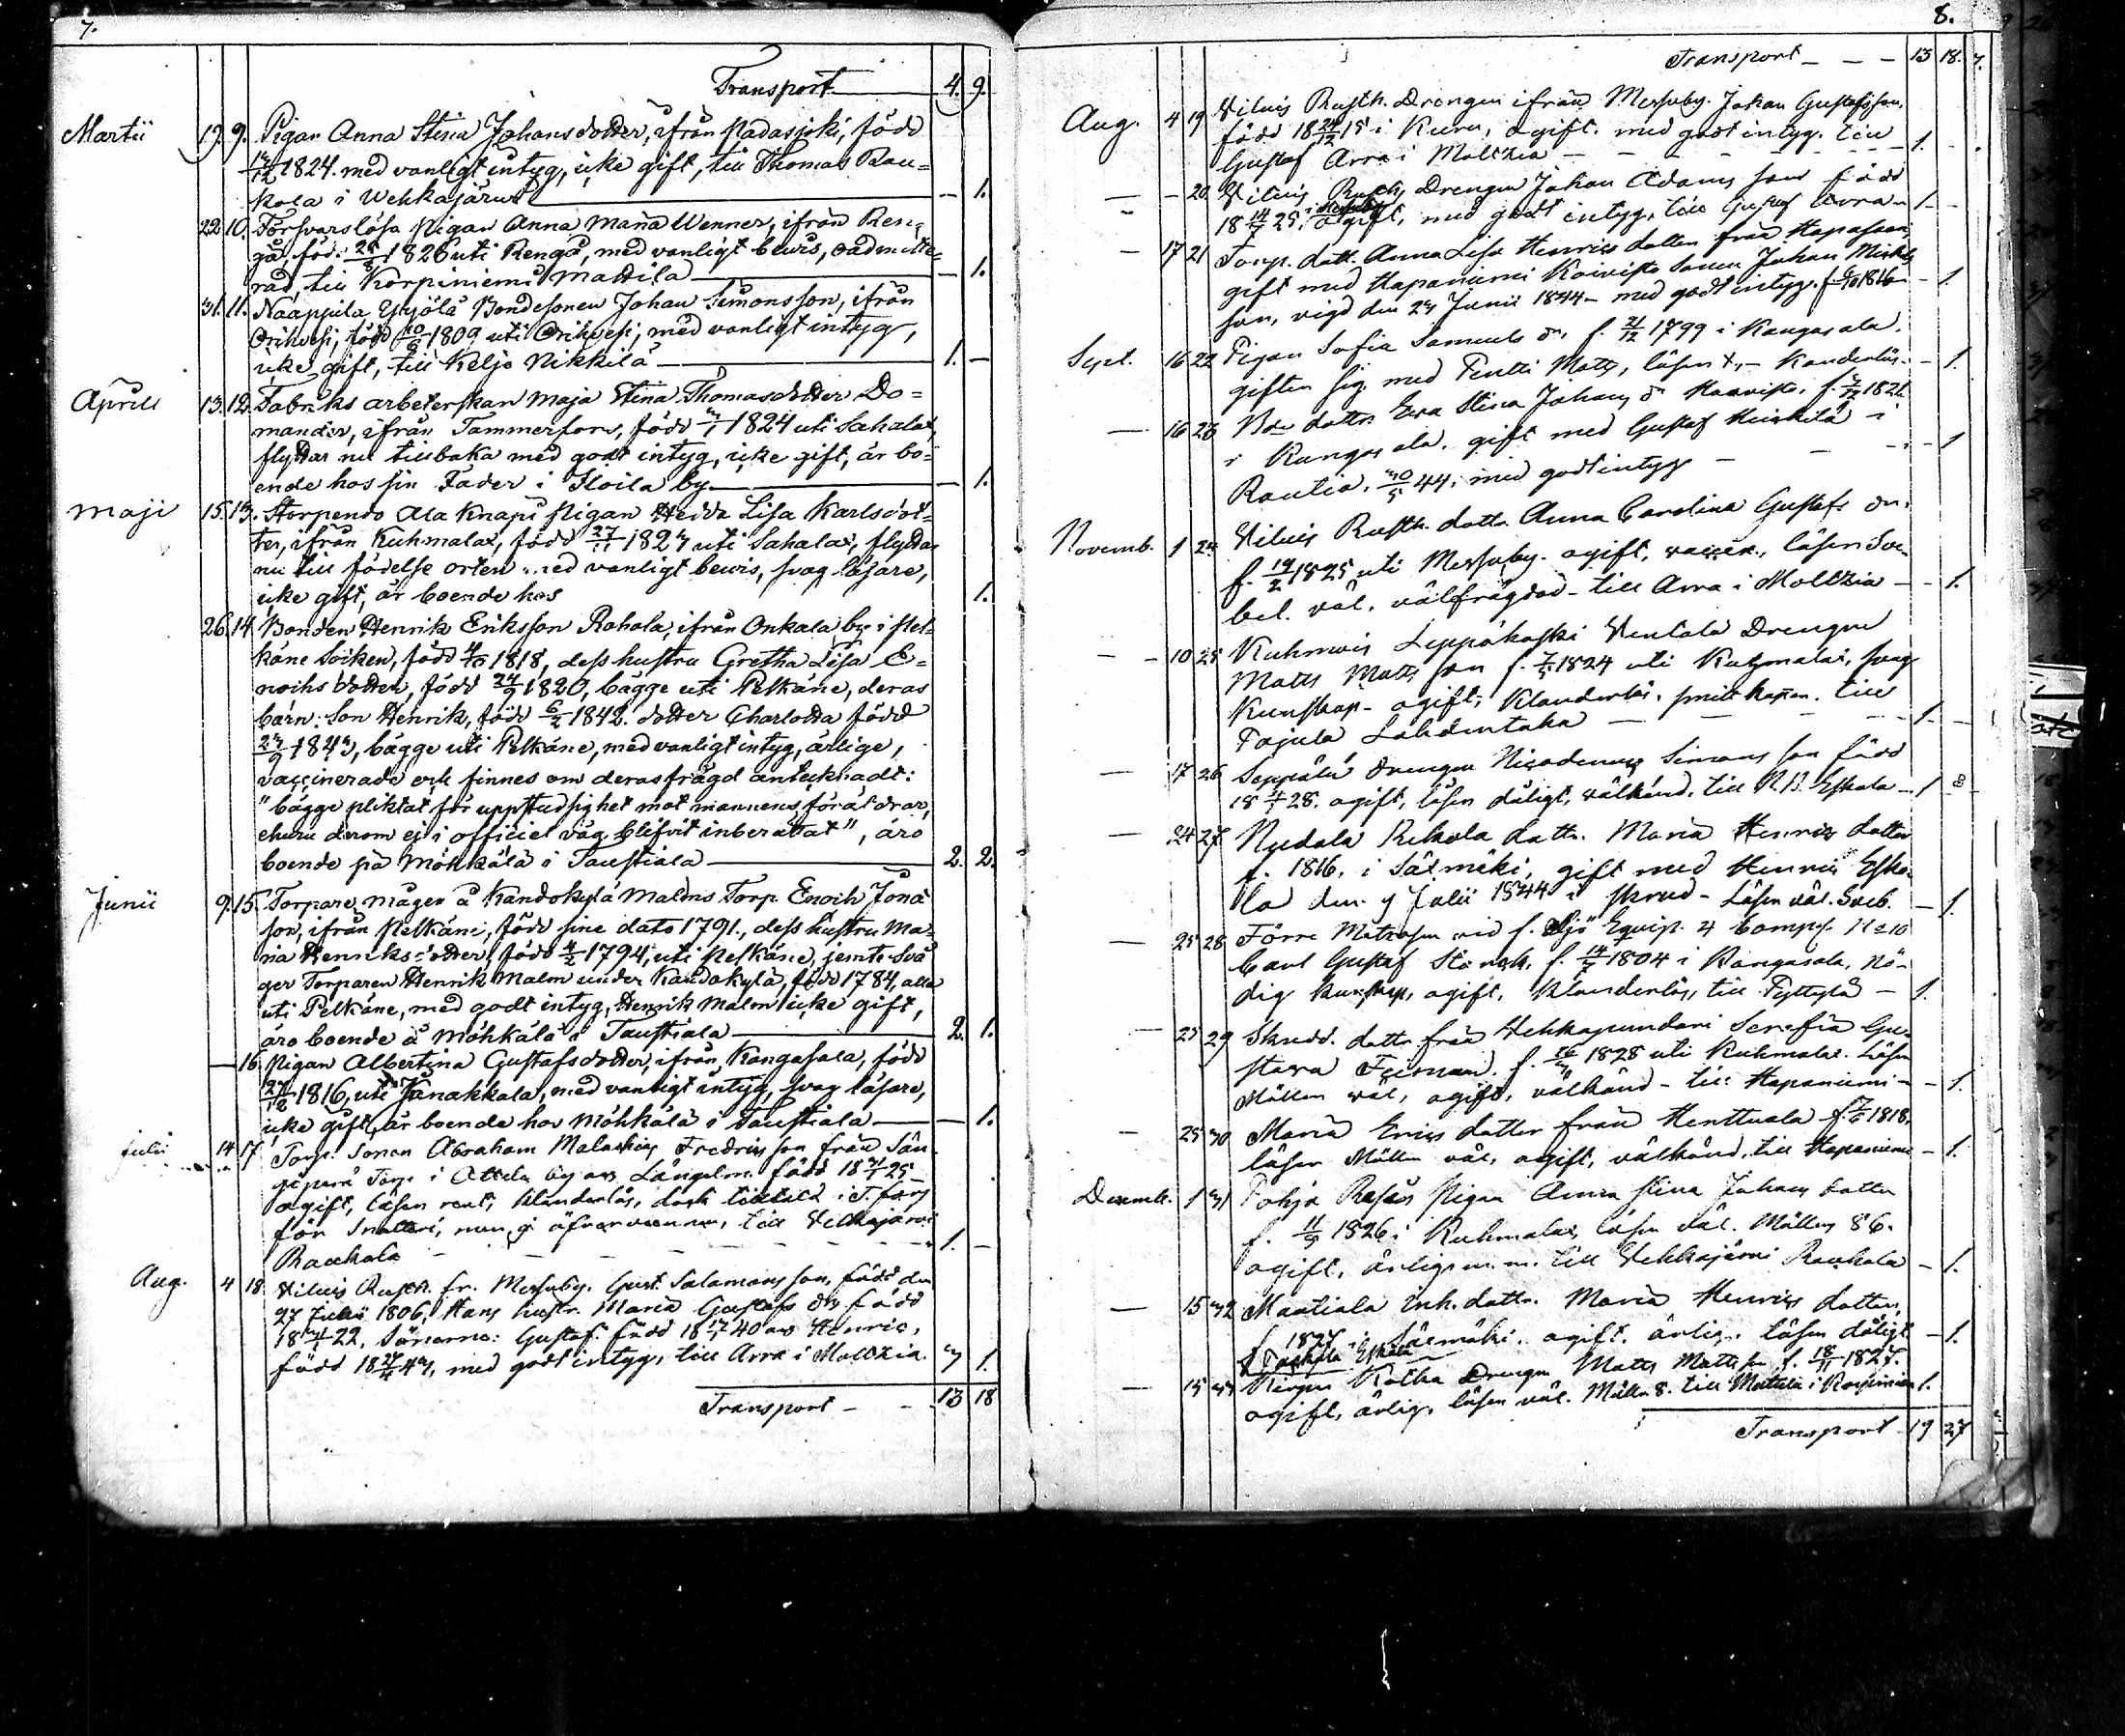 7.
Transport 4. 9.
Martii 19. 9. Pigan Anna Stina Johansdotter, ifrån Padasjoki, född
1824. med vanligt intyg, icke gift, till Thomas Rau=
kola i Wehkajärwi — 1.
22. 10. Försvarslösa Pigan Anna Maria Wenner, ifrån Ren=
gå, föd. 1826 uti Rengå, med vanligt bewis, oadmitte=
rad, till Korpiniemi Mattila — 1.
31. 11. Naappila Yijölä Bondesonen Johan Simonsson, ifrån
Orihvesi, född 1809 uti Orihvesi, med vanligt intyg,
icke gift, till Keljo Nikkilä 1. —
Aprill 13. 12. Fabriks arbeterskan Maja Stina Thomasdotter Do=
mander, ifrån Tammerfors, född 1824 uti Sahalax,
flyttar nu tillbaka med godt intyg, icke gift, är bo=
ende hos sin Fader i Iloila by — 1.
Maji 15. 13. Storpendo Ala Knapi Pigan Hedda Lisa Karlsdot=
ter, ifrån Kuhmalax, född 27/11 1823 uti Sahalax, flyttar
nu till födelse orten med vanligt bewis, svag läsare,
icke gift, är boende hos 1.
26. 14. Bonden Henrik Eriksson Rahola, ifrån Onkala by i Pel=
käne Socken, född 4/10 1818, dess hustru Gretha Lisa E=
nochsdotter, född 24/9 1820, bägge uti Pelkäne, deras
barn: Son Henrik, född 6/2 1842. dotter Charlotta född
23/9 1843, bägge uti Pelkäne, med vanligt intyg, ärlige,
vaccinerade och finnes om deras frägd antecknadt:
"bägge pliktat för uppstudsighet mot mannens föräldrar,
ehuru derom ej i officiel väg blifvit inberättat", äro
boende på Möhkälä i Taustiala 2. 2.
Junii 9. 15. Torpare mågen å Kandokylä Malms Torp Enoch Jona
son, ifrån Pelkäni, född sine dato 1791., dess hustru Ma=
ria Henriks=dotter, född 4/2 1794, uti Pelkäne, jemte Svå
ger Torparen Henrik Malm under Kandokylä, född 1784, alla
uti Pelkäne, med godt intyg, Henrik Malm icke gift,
äro boende å Möhkälä i Taustiala 2. 1.
— 16. Pigan Albertina Gustafsdotter, ifrån Kangasala, född
27/12 1816, uti Janakkala, med vanligt intyg, svag läsare,
icke gift, är boende hos Möhkälä i Taustiala — 1.
Julii 14 17 Torp. Sonen Abraham Malachias Fredriksson från Sän
Torp i Attila by av Längelm. född 18 25
ogift, läsen rent, klanderlös, dock
för snatteri, men ej till Vehkajärvi
Raukola 1. —
Aug. 4 18. Viluis Rusth. fr. Messuby. Gust. Salamonsson, född den
27 Julii 1806, Hans hustr. Maria Gustafs dr född
18 22, Sönerne: Gustaf född 18 40 och Henric,
född 18 43, med godt intyg, till Arra i Moltzia. 3 1.
Transport 13 18
8.
Transport 13 18.
Aug. 4 19 Viluis Rusth. Drengen ifrån Messuby Johan Gustafsson,
född 18 24/12 15 i Kuru, ogift. med godt intyg. till
Gustaf Arra i Moltzia 1. -
— — 20. Viluis Rusth. Drengen Johan Adams son född
18 14/7 25, i Messuby ogift, med godt intyg, till Gustaf Arra 1 -
— 17 21 Torp. dott. Anna Lisa Henrics dotter från Hapasaari,
gift med Hapaniemi Koivisto Sonen Johan Mickels
son, vigd den 24 Junii 1844 — med godt intyg. f. 1816 — 1
Sept. 16 22 Pigan Sofia Samuels dr, f. 21/12 1799 i Kangasala,
giften sig med Pentti Matts, läsen +, — klanderlös. — 1.
— 16 23 Bde dottr. Ewa Stina Johans dr Haavisto. f. 1821
i Kangasala. gift med Gustaf Heikkilä i
Rautia. 30/5 44. med godt intyg — 1
Novemb. 1 24 Viluis Rusth. dottr. Anna Carolina Gustafs dr.
f. 19/2 1825 uti Messuby. ogift, vaccin., läsen Sve
bel. väl, välfrägdad — till Arra i Moltzia — 1.
— 10 25 Kuhmois Leppäkoski Ventola Drengen
Matts Matts son f. 7/5 1824 uti Kuhmalax, svag
kunskap — ogift, klanderlös. smittkoppor. till
Pajula Lahdentaka 1 -
— 17 26 Seppälä drengen Nicodemus Simons son född
18 4/7 28. ogift, läsen dåligt, välkänd. till R.B. Eskola 1 -
— 24 27 Rekola dottr. Maria Henrics dotter
f. 1816, i Säxmäki, gift med Henric Esko
la den 9 Julii 1844 i — Läsen väl. Sveb. — 1.
— 25 28 Förre Matrosen vid f. Sjö Equip. 4 Comp. N=10
Carl Gustaf f. 14/7 1804 i Kangasala, Nö=
dig kunskap, ogift, klanderlös, till Pyttylä — 1.
— 25 29 Skredd. dottr från Vehkapundari Serafia Gu
stava Friman. f. 1828 uti Kuhmalax. Läsen
Möllen väl, ogift, välkänd — till Hapaniemi — 1.
— 25 30 Maria Erics dotter från Henttuala f. 7/6 1818,
läsen Möllen väl, ogift, välkänd, till Hapaniemi — 1.
Decemb. 1 31 Pohja Pigan Anna Stina Johans dotter
f. 11/9 1826 i Kuhmalax, läsen väl. Möllens 86.
ogift, ärlig m.m. till Vehkajärvi Raukola — 1.
— 15 32 Mantiala Inh. dottr. Maria Henrics dotter,
f. 1827 i Säxmäki. ogift. ärlig. läsen dåligt — 1.
Eskola
— 15 33 Kotka Drengen Matts Matts son f. 18/11 1827.
ogift, ärlig, läsen väl. Möllen 8. till Mattila i Korpiniemi 1.
Transport 19 27